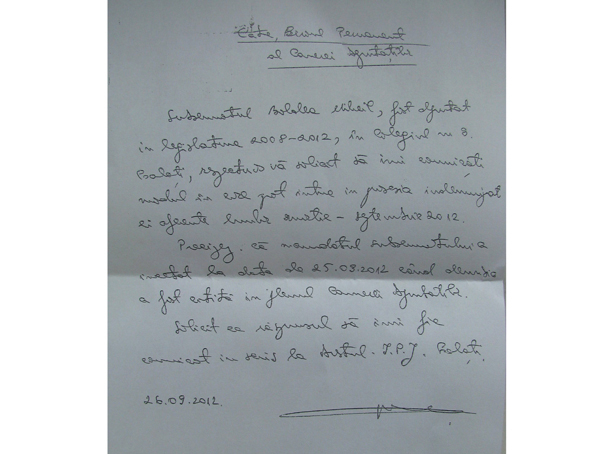 Către, Biroul Permanent
al Camerei Deputaților
Subsemnatul Bolalea Mihail, fost deputat
în legislatura 2008-2012, în Colegiul nr 8.
Galați, respectuos vă solicit să îmi comunicați
modul în care pot intra în posesia indemnizat
ei aferente lunilor martie - septembrie 2012.
Precizez că mandatul subsemnatului a
încetat la data de 25.09.2012 când demisia
a fost citită în plenul Camerei Deputaților.
Solicit ca răspunsul să îmi fie
comunicat în scris la Arestul I.P.J. Galați.
26.09.2012.